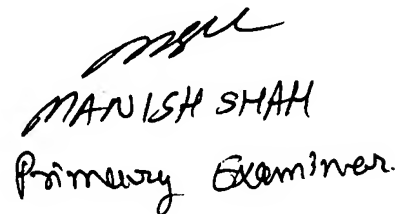 MANISH SHAH
Primary Examiner.